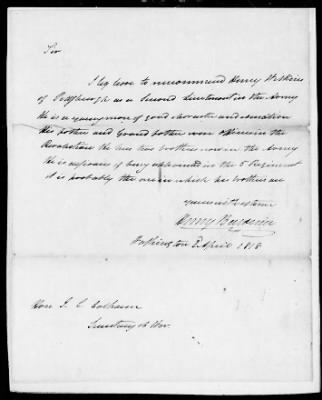 Sir
I beg leave to recommend Henry Wilkins
of Pittsburgh as a Second Lieutenant in the Army
He is a young man of good character and education
his father and Grand father were officers in the
Revolution He has two brothers now in the Army
He is desirous of being appointed in the 5 Regiment
it is probably the one in which his brothers are
yours with esteem
Henry Baldwin
Washington 3 April 1818
Hon J C Calhoun
Secretary of War